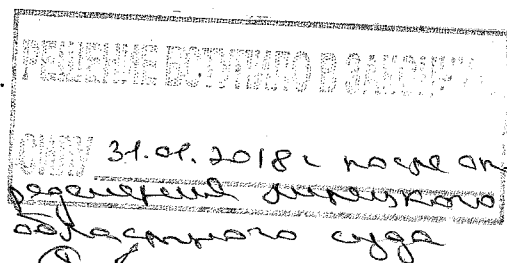 РЕШЕНИЕ ВСТУПИЛО В ЗАКОННУЮ
СИЛУ 31.01.2018 г после оп
ределения Липецкого
областного суда